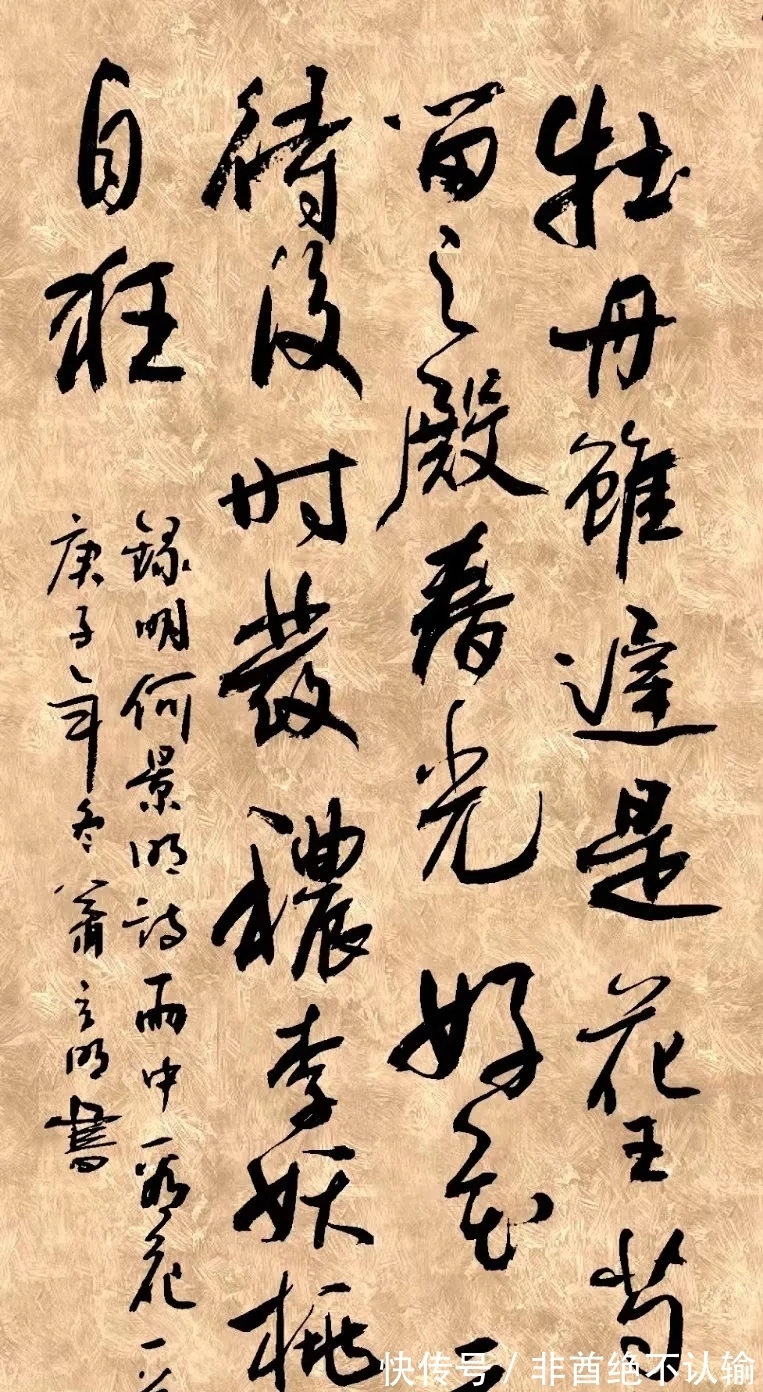 牡丹雖遲是花王芍
留之殿春光好花一
待後时發穠李妖桃
自狂
錄明何景明詩雨中花一
庚子年冬蕭立明書
快传号/非酋绝不认输